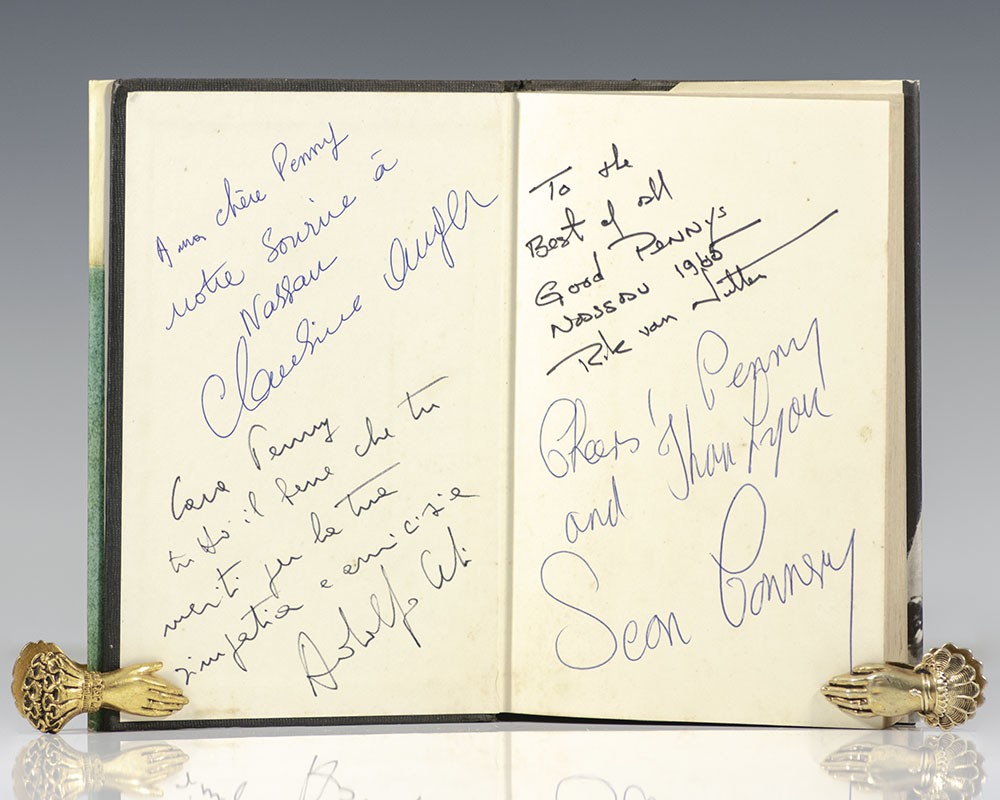 A ma chère Penny
notre Sourire à
Nassau
Claudine Auger
Cara Penny
tu il bene che tu
meriti per la tua
simpatia e amicizia
Adolfo Celi
To the
Best of all
Good PENNYs
Nassau 1965
Rik van Nutter
Cheers Penny
and Thank you
Sean Connery